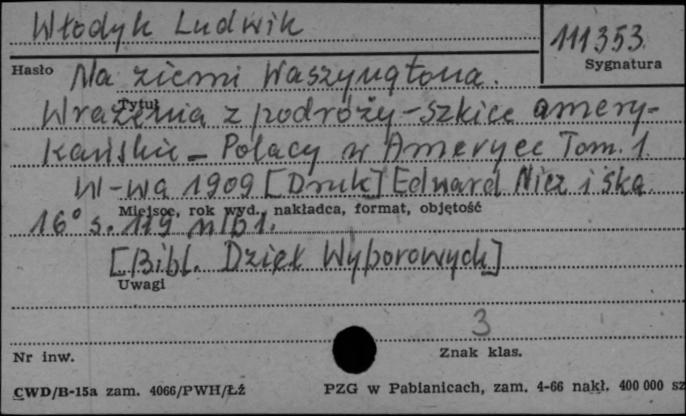 Włodyk Ludwik
111353.
Hasło
Sygnatura
Na ziemi Waszyngtona.
Tytuł
Wrażenia z podróży - szkice amery-
kańskie - Polacy w Ameryce Tom. 1.
W-wa 1909 [Druk] Edward Nicz i ska.
Miejsce, rok wyd., nakładca, format, objętość
16° s. 119 nlb 1.
[Bibl. Dzieł Wyborowych]
Uwagi
3
Nr inw.
Znak klas.
CWD/B-15a zam. 4066/PWH/Łź
PZG w Pabianicach, zam. 4-66 nakł. 400 000 sz